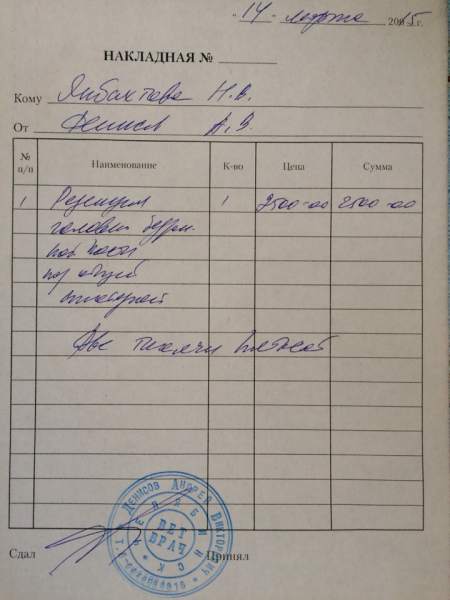 14 марта 2015 г.
НАКЛАДНАЯ №
Кому Янбахтова Н.В.
От Денисов А.В.
№ п/п Наименование К-во Цена Сумма
1 Резекция 1 2500-00 2500-00
головки бедрен
ной кости
под общей
анестезией
Две тысячи пятьсот
Денисов Андрей Викторович
ВЕТ
ВРАЧ
Сдал Принял